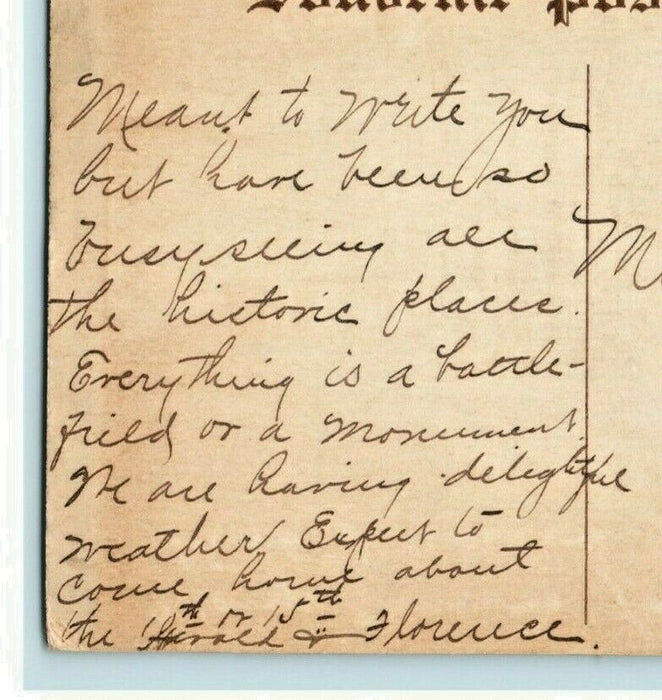 Souvenir Pos
Meant to Write You
but have been so
busy seeing all
the historic places.
Everything is a battle-
field or a Monument.
We are having delightful
weather Expect to
come home about
the 14th or 15th
Florence.
M